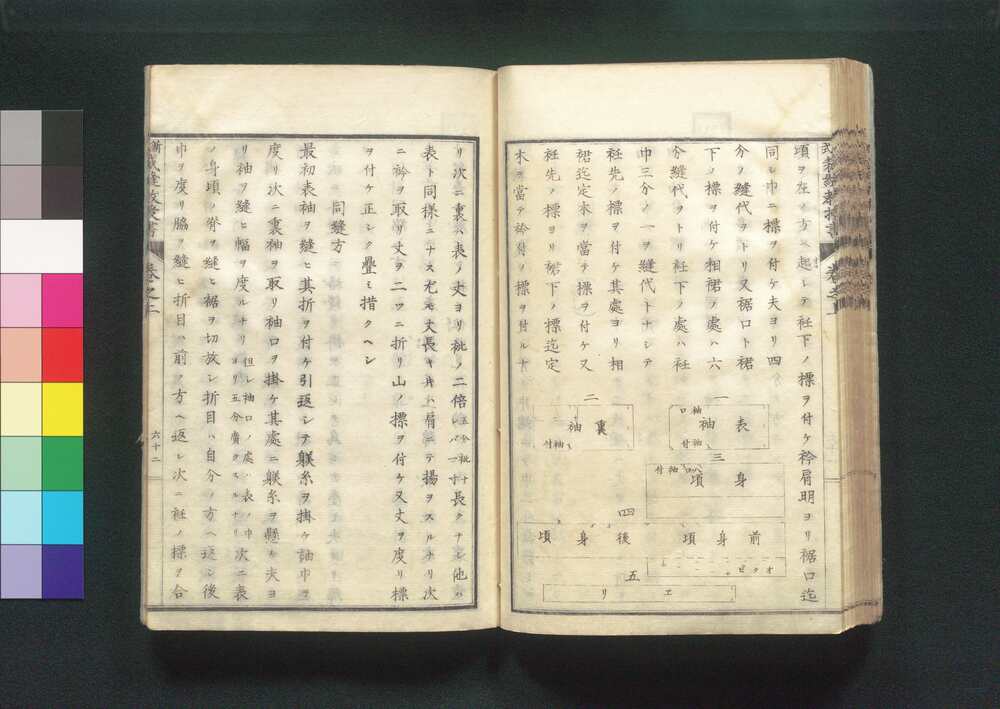 頃ヲ左ノ方ヘ起シテ衽下ノ標ヲ付ケ衿肩明ヨリ裾口迄
同シ巾ニ標ヲ付ケ夫ヨリ四
分ノ縫代ヲトリ又裾口ト裾
下ノ標ヲ付ケ相裙ノ處ハ六
分縫代ヲトリ衽下ノ處ハ衽
巾三分ノ一ヲ縫代トナシテ
衽先ノ標ヲ付ケ其處ヨリ相
裙迄定木ヲ當テ標ヲ付ケ又
衽先ノ標ヨリ裙下ノ標迄定
木ヲ當テ衿付ノ標ヲ付ルナ
一
表袖
袖口
袖付
二
裏袖
袖付
三
身頃
袖付
四
前身頃
後身頃
オクビ
五
エリ
リ次ニ裏ハ表ノ丈ヨリ袘ノ二倍
長クナシ他ハ
表ト同様ニナス尤モ丈長キキハ肩ニテ揚ヲスルナリ次
ニ衿ヲ取リ丈ヲ二ツニ折リ山ノ標ヲ付ケ又丈ヲ度リ標
ヲ付ケ正シク疊ミ措クヘシ
同縫方
最初表袖ヲ縫ヒ其折ヲ付ケ引返シテ躾糸ヲ掛ケ袖巾ヲ
度リ次ニ裏袖ヲ取リ袖口ヲ掛ケ其處ニ躾糸ヲ懸ケ夫ヨ
リ袖ヲ縫ヒ幅ヲ度ルナリ
但シ袖口ノ處ハ表ノ巾
ヨリ五分廣クスルナリ
次ニ表
ノ身頃ノ脊ヲ縫ヒ裾ヲ切放シ折目ハ自分ノ方ヘ返シ後
巾ヲ度リ脇ヲ縫ヒ折目ハ前ノ方ヘ返シ次ニ衽ノ標ヲ合
卷之二
六十二